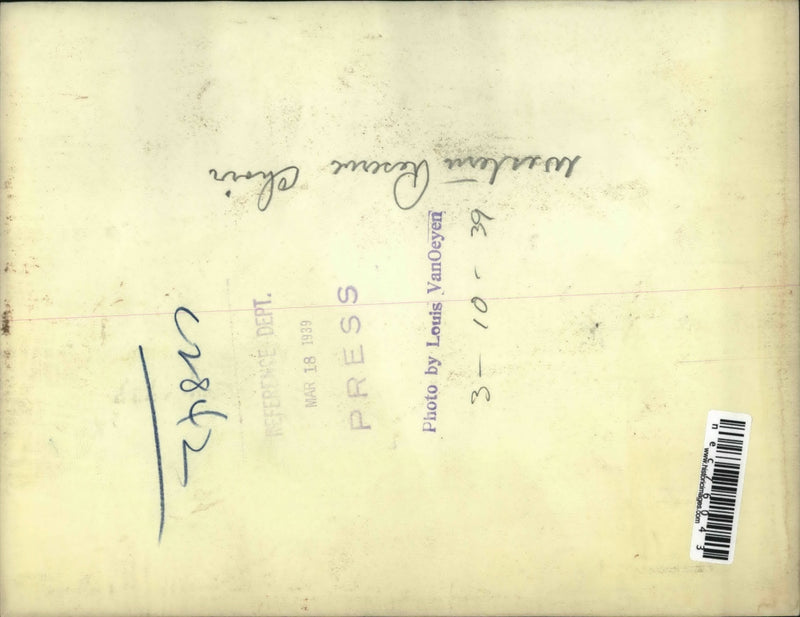 Western Reserve Choir
3-10-39
Photo by Louis VanOeyen
PRESS
MAR 18 1939
REFERENCE DEPT.
www.historicimages.com